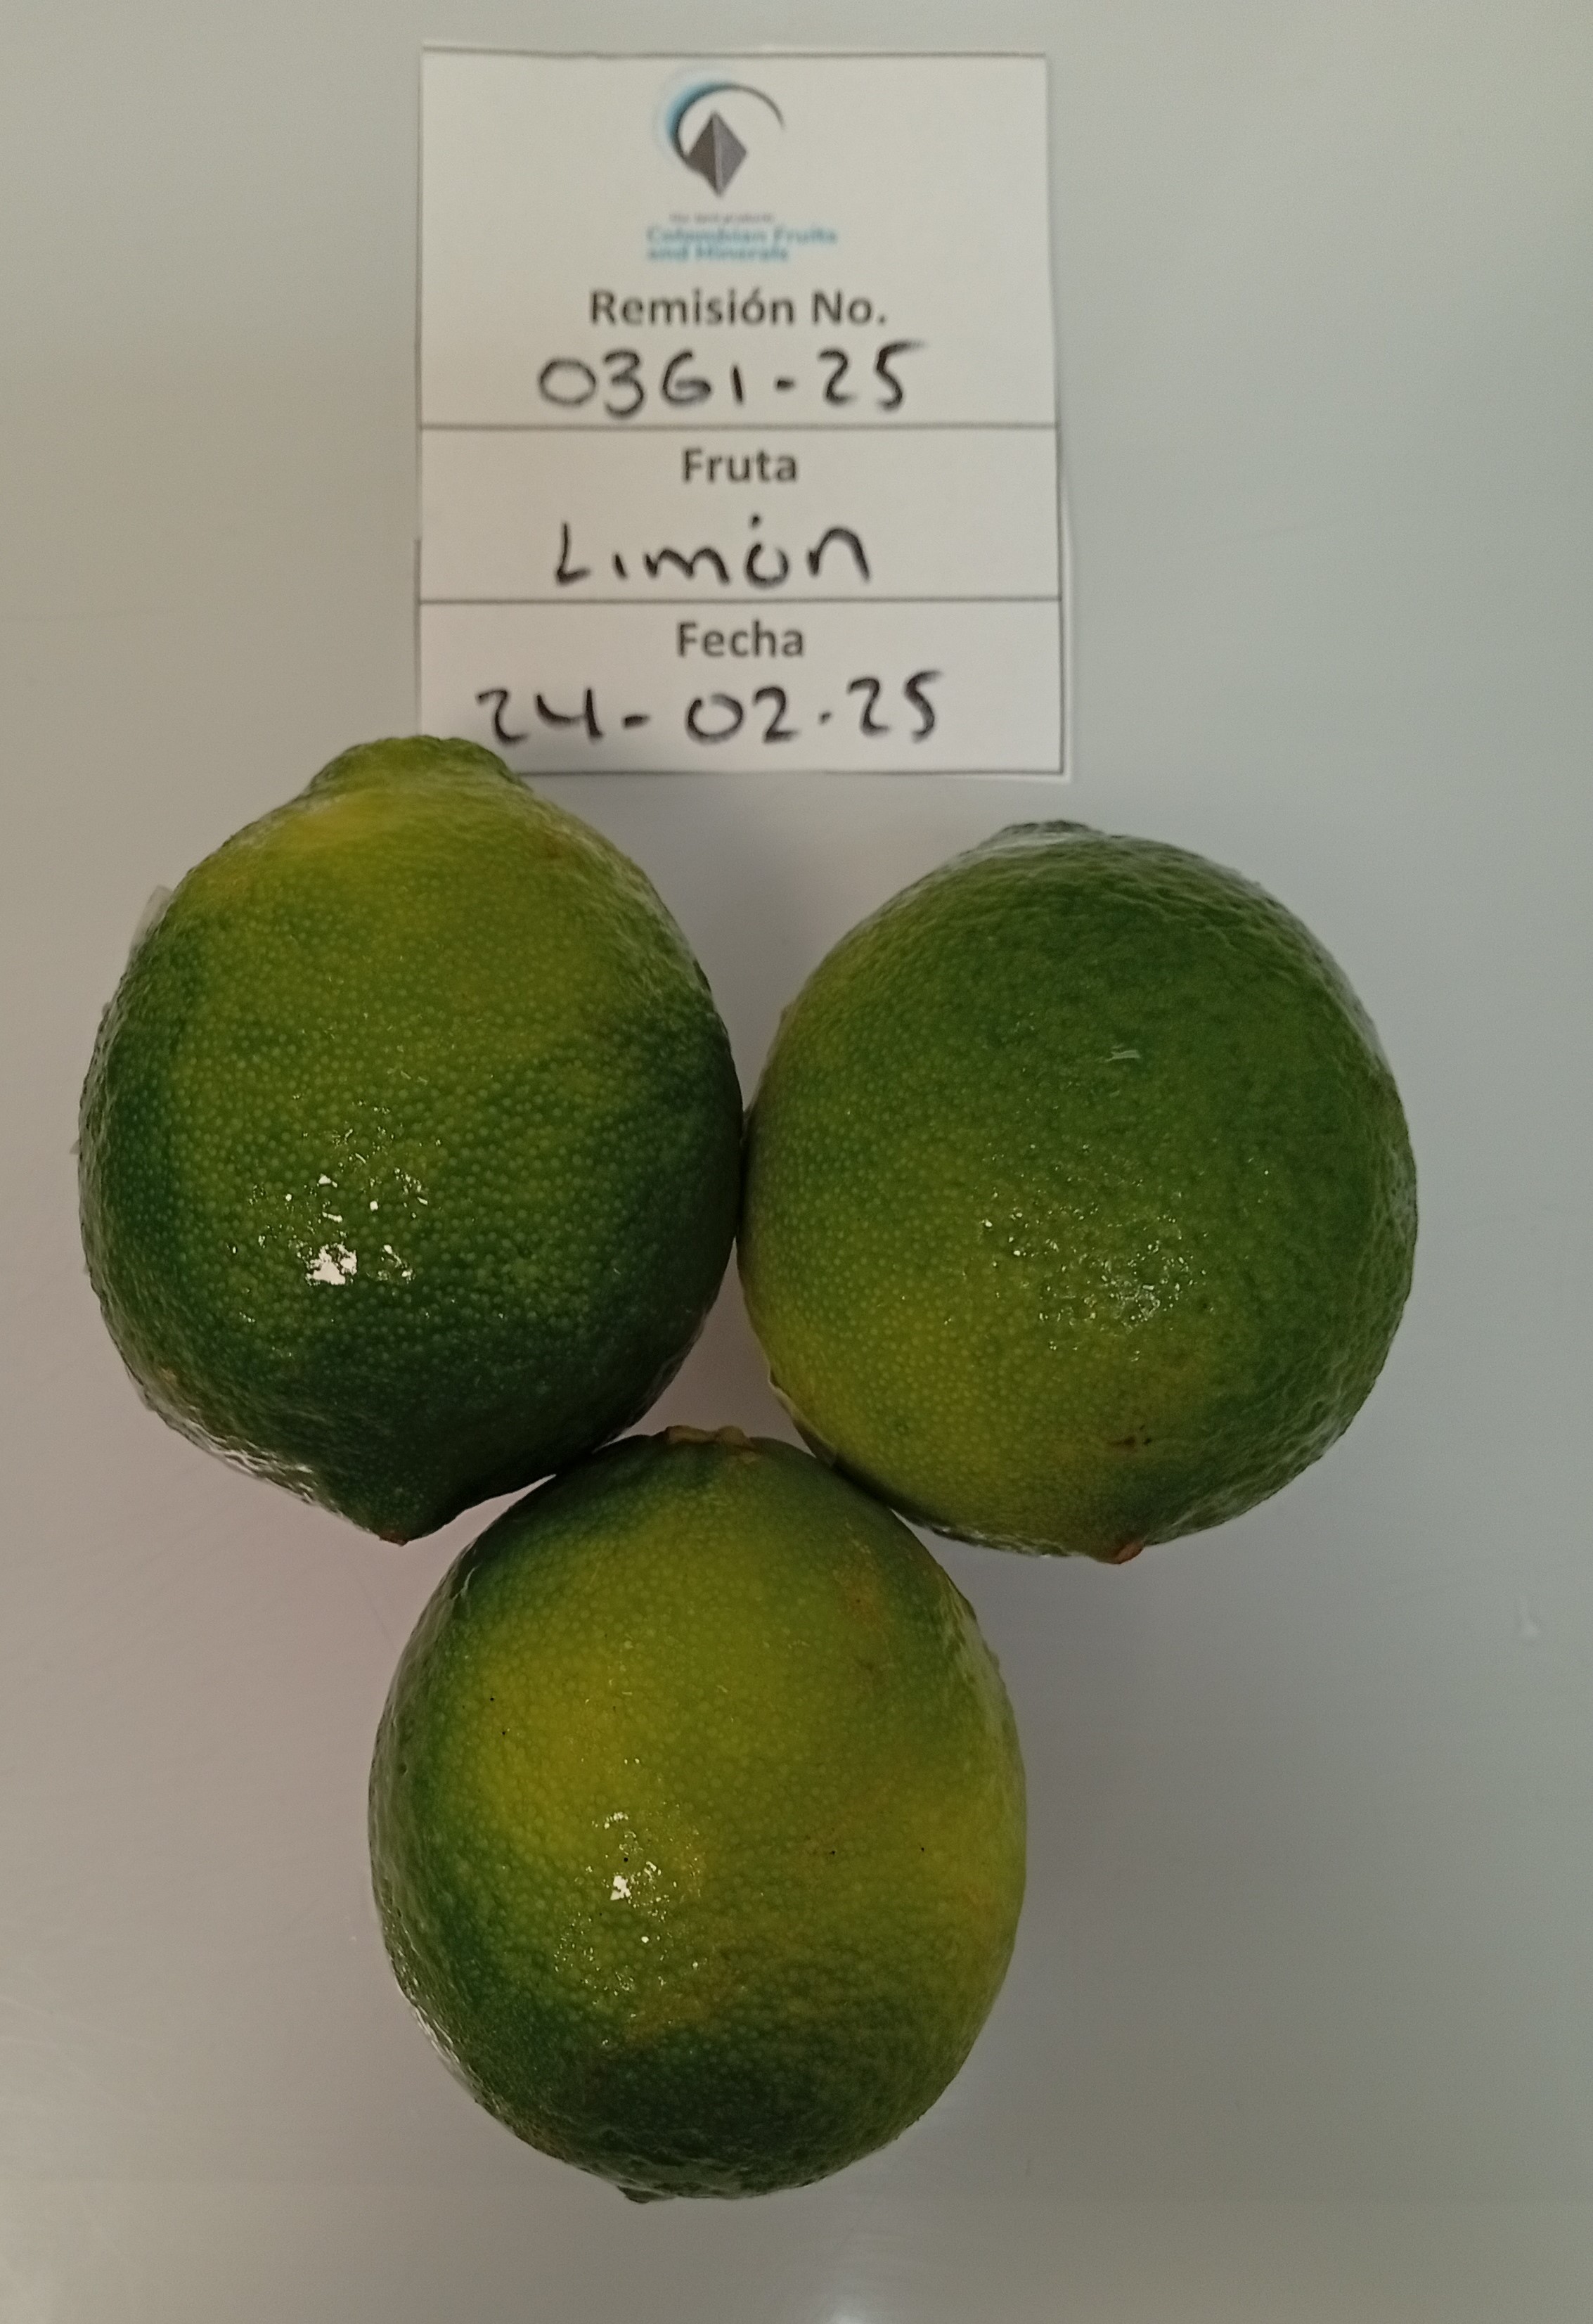 Colombian Fruits
and Minerals
Remisión No.
0361-25
Fruta
Limón
Fecha
24-02-25